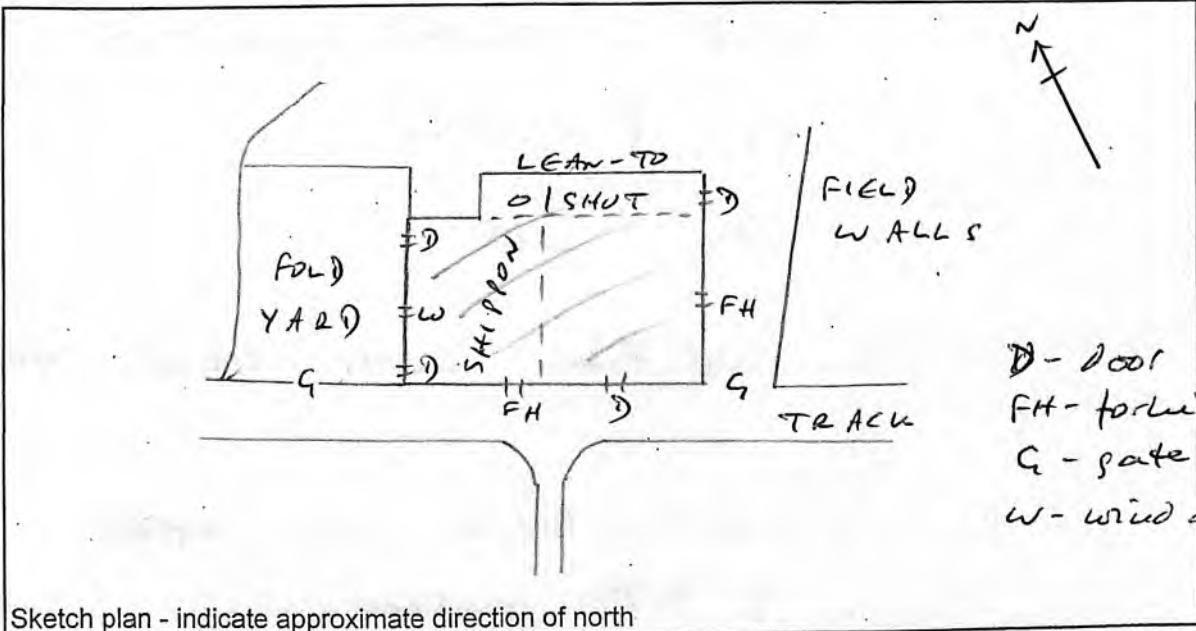 N
LEAN-TO
O/SHUT
D
FIELD
WALLS
D
FOLD
YARD
W
SHIPPON
FH
D
G
FH
D
G
TRACK
D - Door
FH -
G - gate
W -
Sketch plan - indicate approximate direction of north